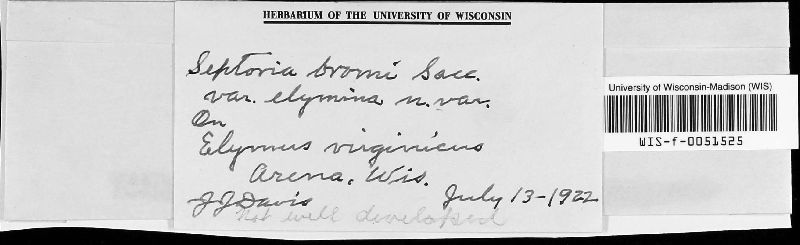 HERBARIUM OF THE UNIVERSITY OF WISCONSIN
Septoria bromi Sacc.
var. elymina n. var.
On
Elymus virginicus
Arena, Wis.
J J Davis July 13-1922
not well developed
University of Wisconsin-Madison (WIS)
WIS-f-0051525